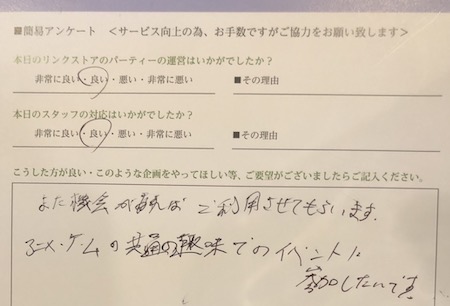 ■簡易アンケート ＜サービス向上の為、お手数ですがご協力をお願い致します＞
本日のリンクストアのパーティーの運営はいかがでしたか?
非常に良い・良い・悪い・非常に悪い ■その理由
本日のスタッフの対応はいかがでしたか?
非常に良い・良い・悪い・非常に悪い ■その理由
こうした方が良い・このような企画をやってほしい等、ご要望がございましたらご記入ください。
また機会が有ればご利用させてもらいます。
アニメ・ゲームの共通の趣味でのイベントに
参加したいです